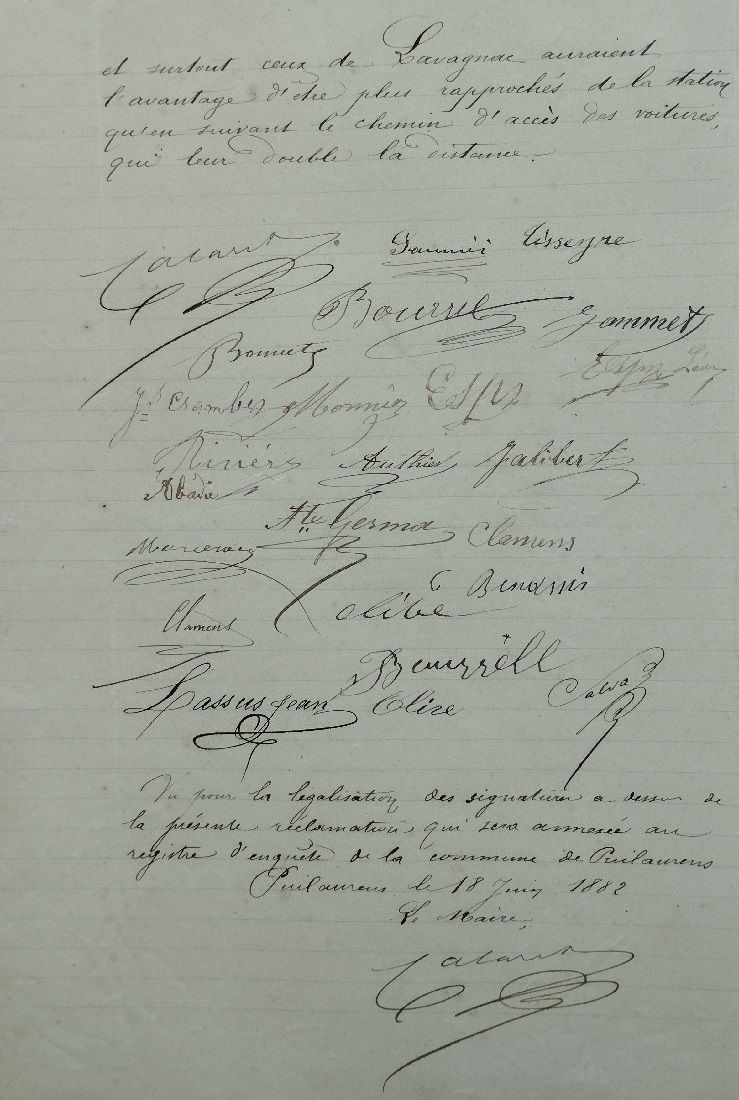 et surtout ceux de Lavagnac auraient
l'avantage d'être plus rapprochés de la station
qu'en suivant le chemin d'accès des voitures,
qui leur double la distance.
Calaret
Tisseyre
Bourrel Jammet
Bonnet
Crambes Monnié
Rivière Authier Galibert
Abadie
Germa Clamens
Benassis
Clamens Olibe
Bourrèll
Lassus Jean Olive Salva
Vu pour la légalisation des signatures a dessus de
la présente réclamation qui sera annexée au
registre d'enquête de la commune de Puilaurens
Puilaurens le 18 Juin 1882
Le Maire,
Calaret